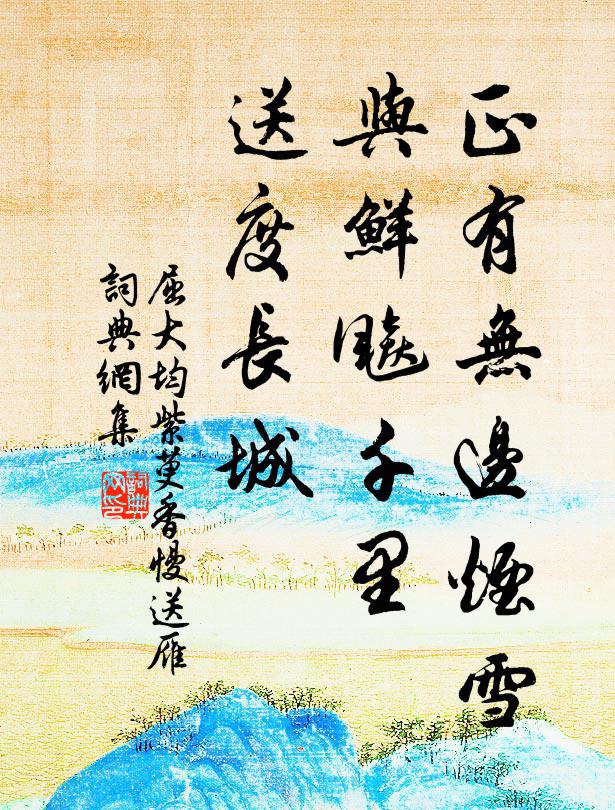 正有無邊煙雪
與鮮飈千里
送度長城
屈大均紫萸香慢送雁
詞典網集
詞典